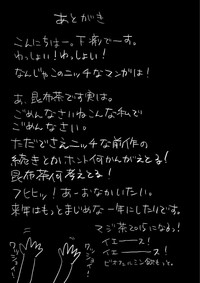 あとがき
こんにちはー。下剤でーす。
わっしょい!わっしょい!
なんじゃこのニッチなマンガは!
あ、昆布茶です実は。
ごめんなさいねこんな私で
ごめんなさい。
ただでさえニッチな前作の
続きとかホント何かんがえとる!
昆布茶何考えとる!
フヒヒッ!あーおなかいたい。
来年はもっとまじめな一年にしたいです。
マジ茶2015になるっ!
イエーース!
イエーース!
ビオフェルミン飲もっと。
ワッショイ!
ワッショイ!